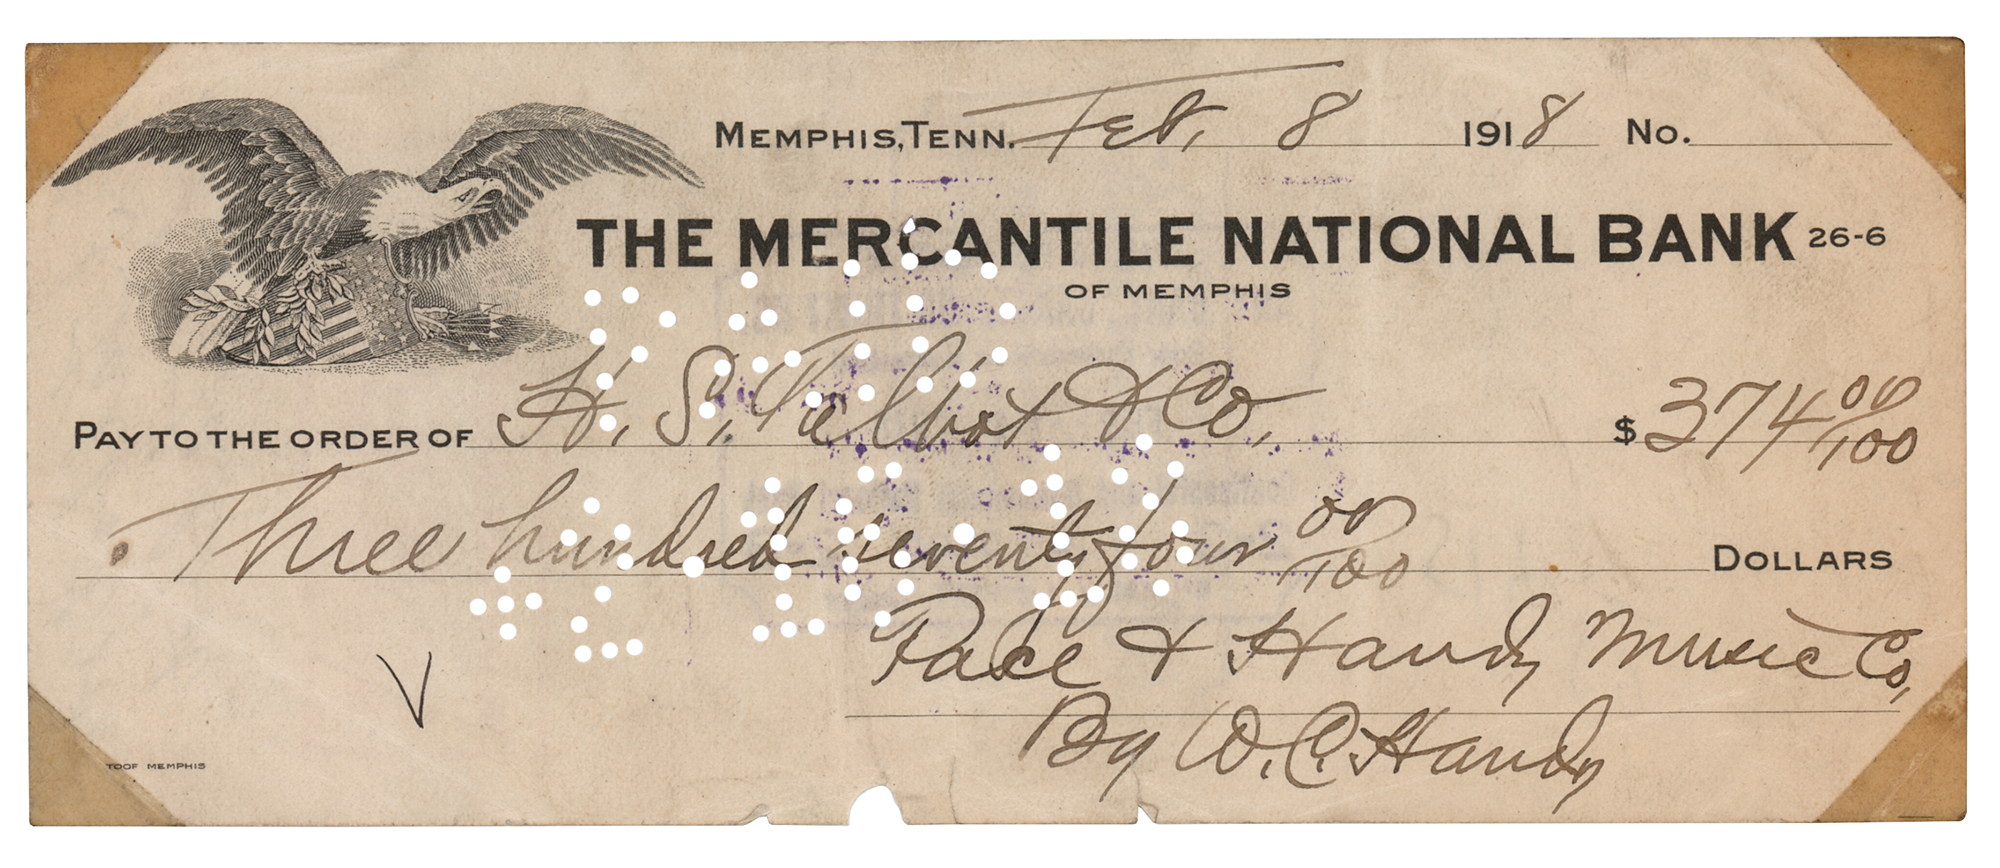 MEMPHIS, TENN. Feb. 8 1918 No.
THE MERCANTILE NATIONAL BANK 26-6
OF MEMPHIS
PAY TO THE ORDER OF H. S. Talbot & Co. $374 00/100
Three hundred seventy four 00/100 DOLLARS
Pace & Handy Music Co.
By W. C. Handy
TOOF MEMPHIS